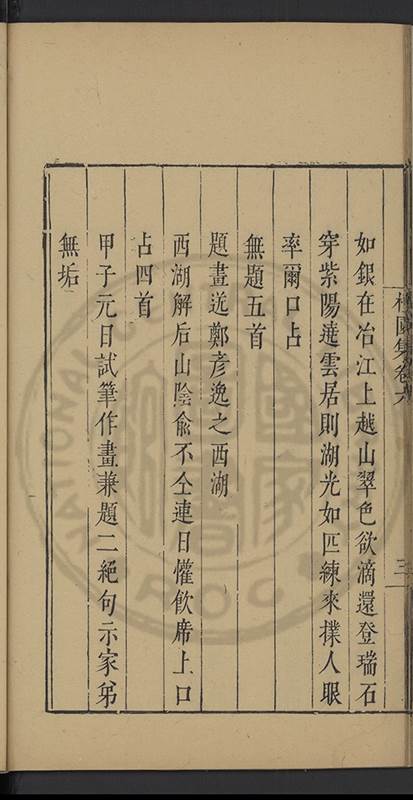 集卷六
三
如銀在冶江上越山翠色欲滴還登瑞石
穿紫陽遶雲居則湖光如匹練來撲人眼
率爾口占
無題五首
題畫送鄭彥逸之西湖
西湖解后山陰俞不仝連日懽飲席上口
占四首
甲子元日試筆作畫兼題二絕句示家弟
無垢